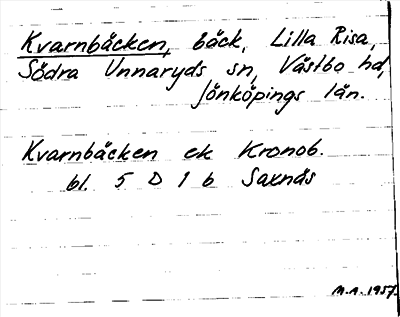 Kvarnbäcken, bäck, Lilla Risa,
Södra Unnaryds sn, Västbo hd,
Jönköpings län.
Kvarnbäcken ek Kronob.
bl. 5 D 1 b Saxnäs
M.A. 1957.